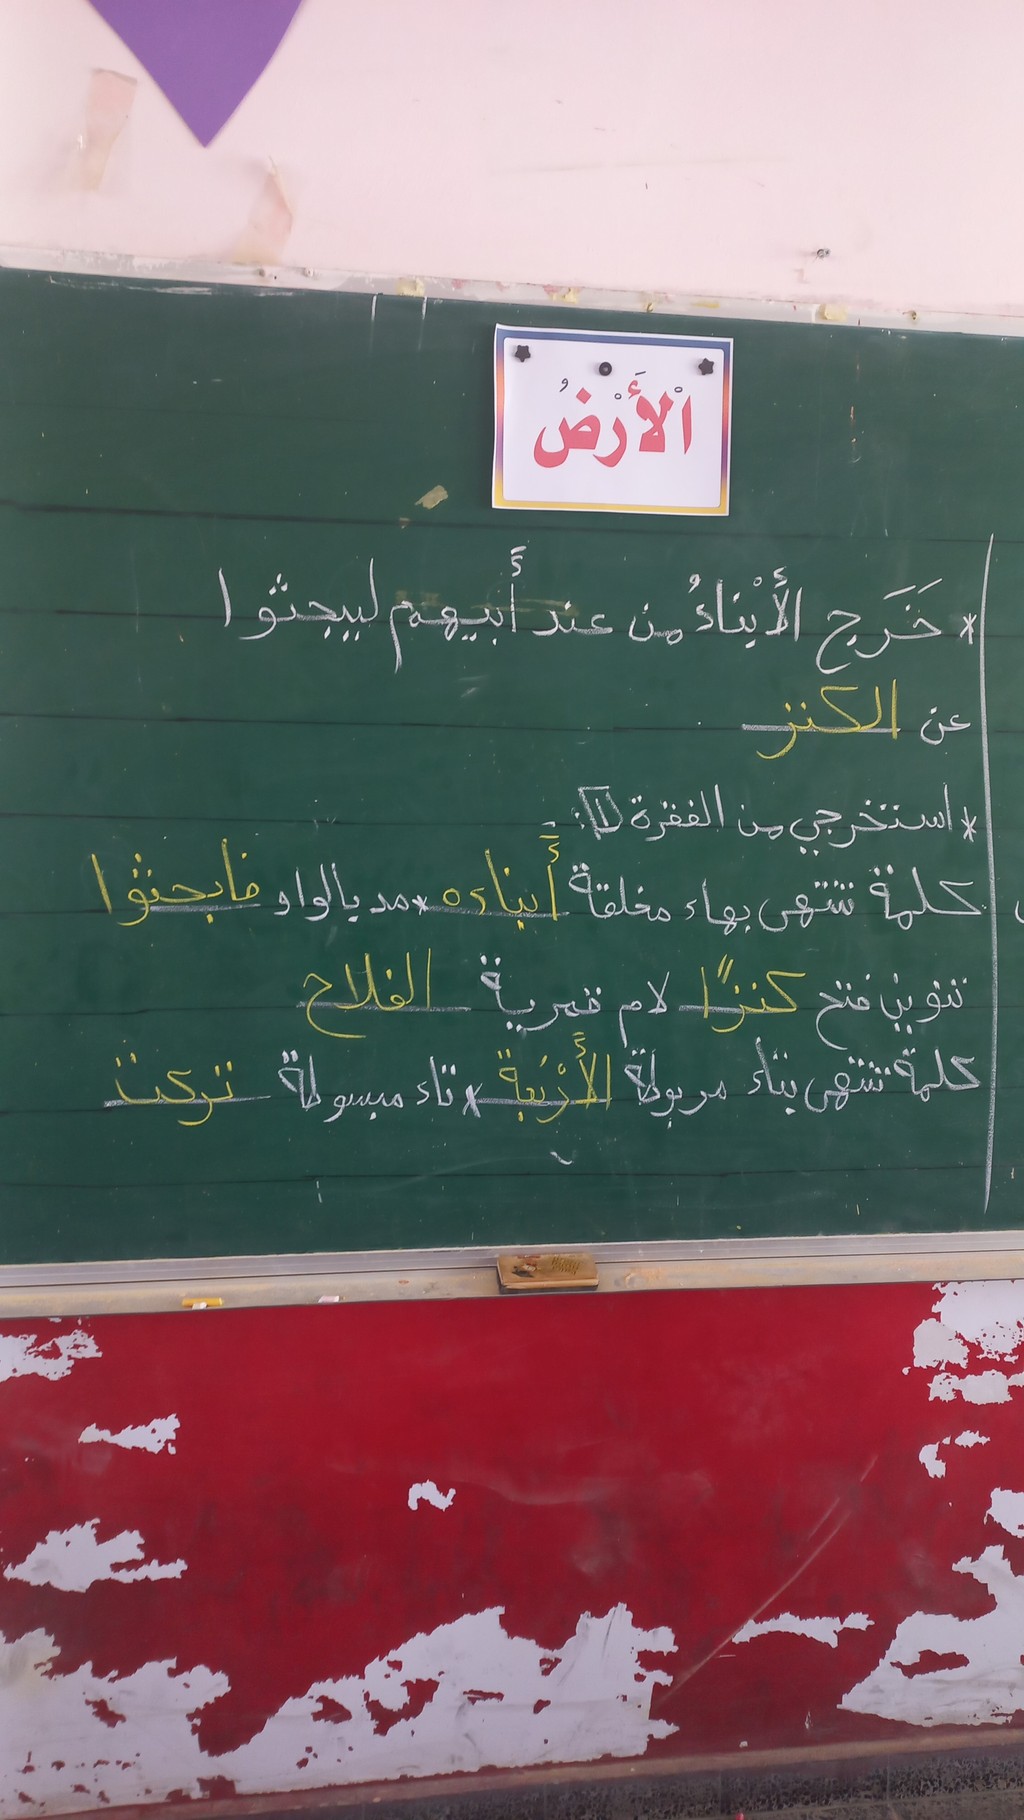 الْأَرْضُ
* خَرَج الأَبْناءُ من عند أَبيهم ليبحثوا
عن الكنز
* استخرجي من الفقرة 1 :-
كلمة تنتهي بهاء مغلقة أَبناءه * مد بالواو فابحثوا
تنوين فتح كنزًا لام قمرية الفلاح
كلمة تنتهي بتاء مربوطة الأَرْبَعة * تاء مبسوطة تركت